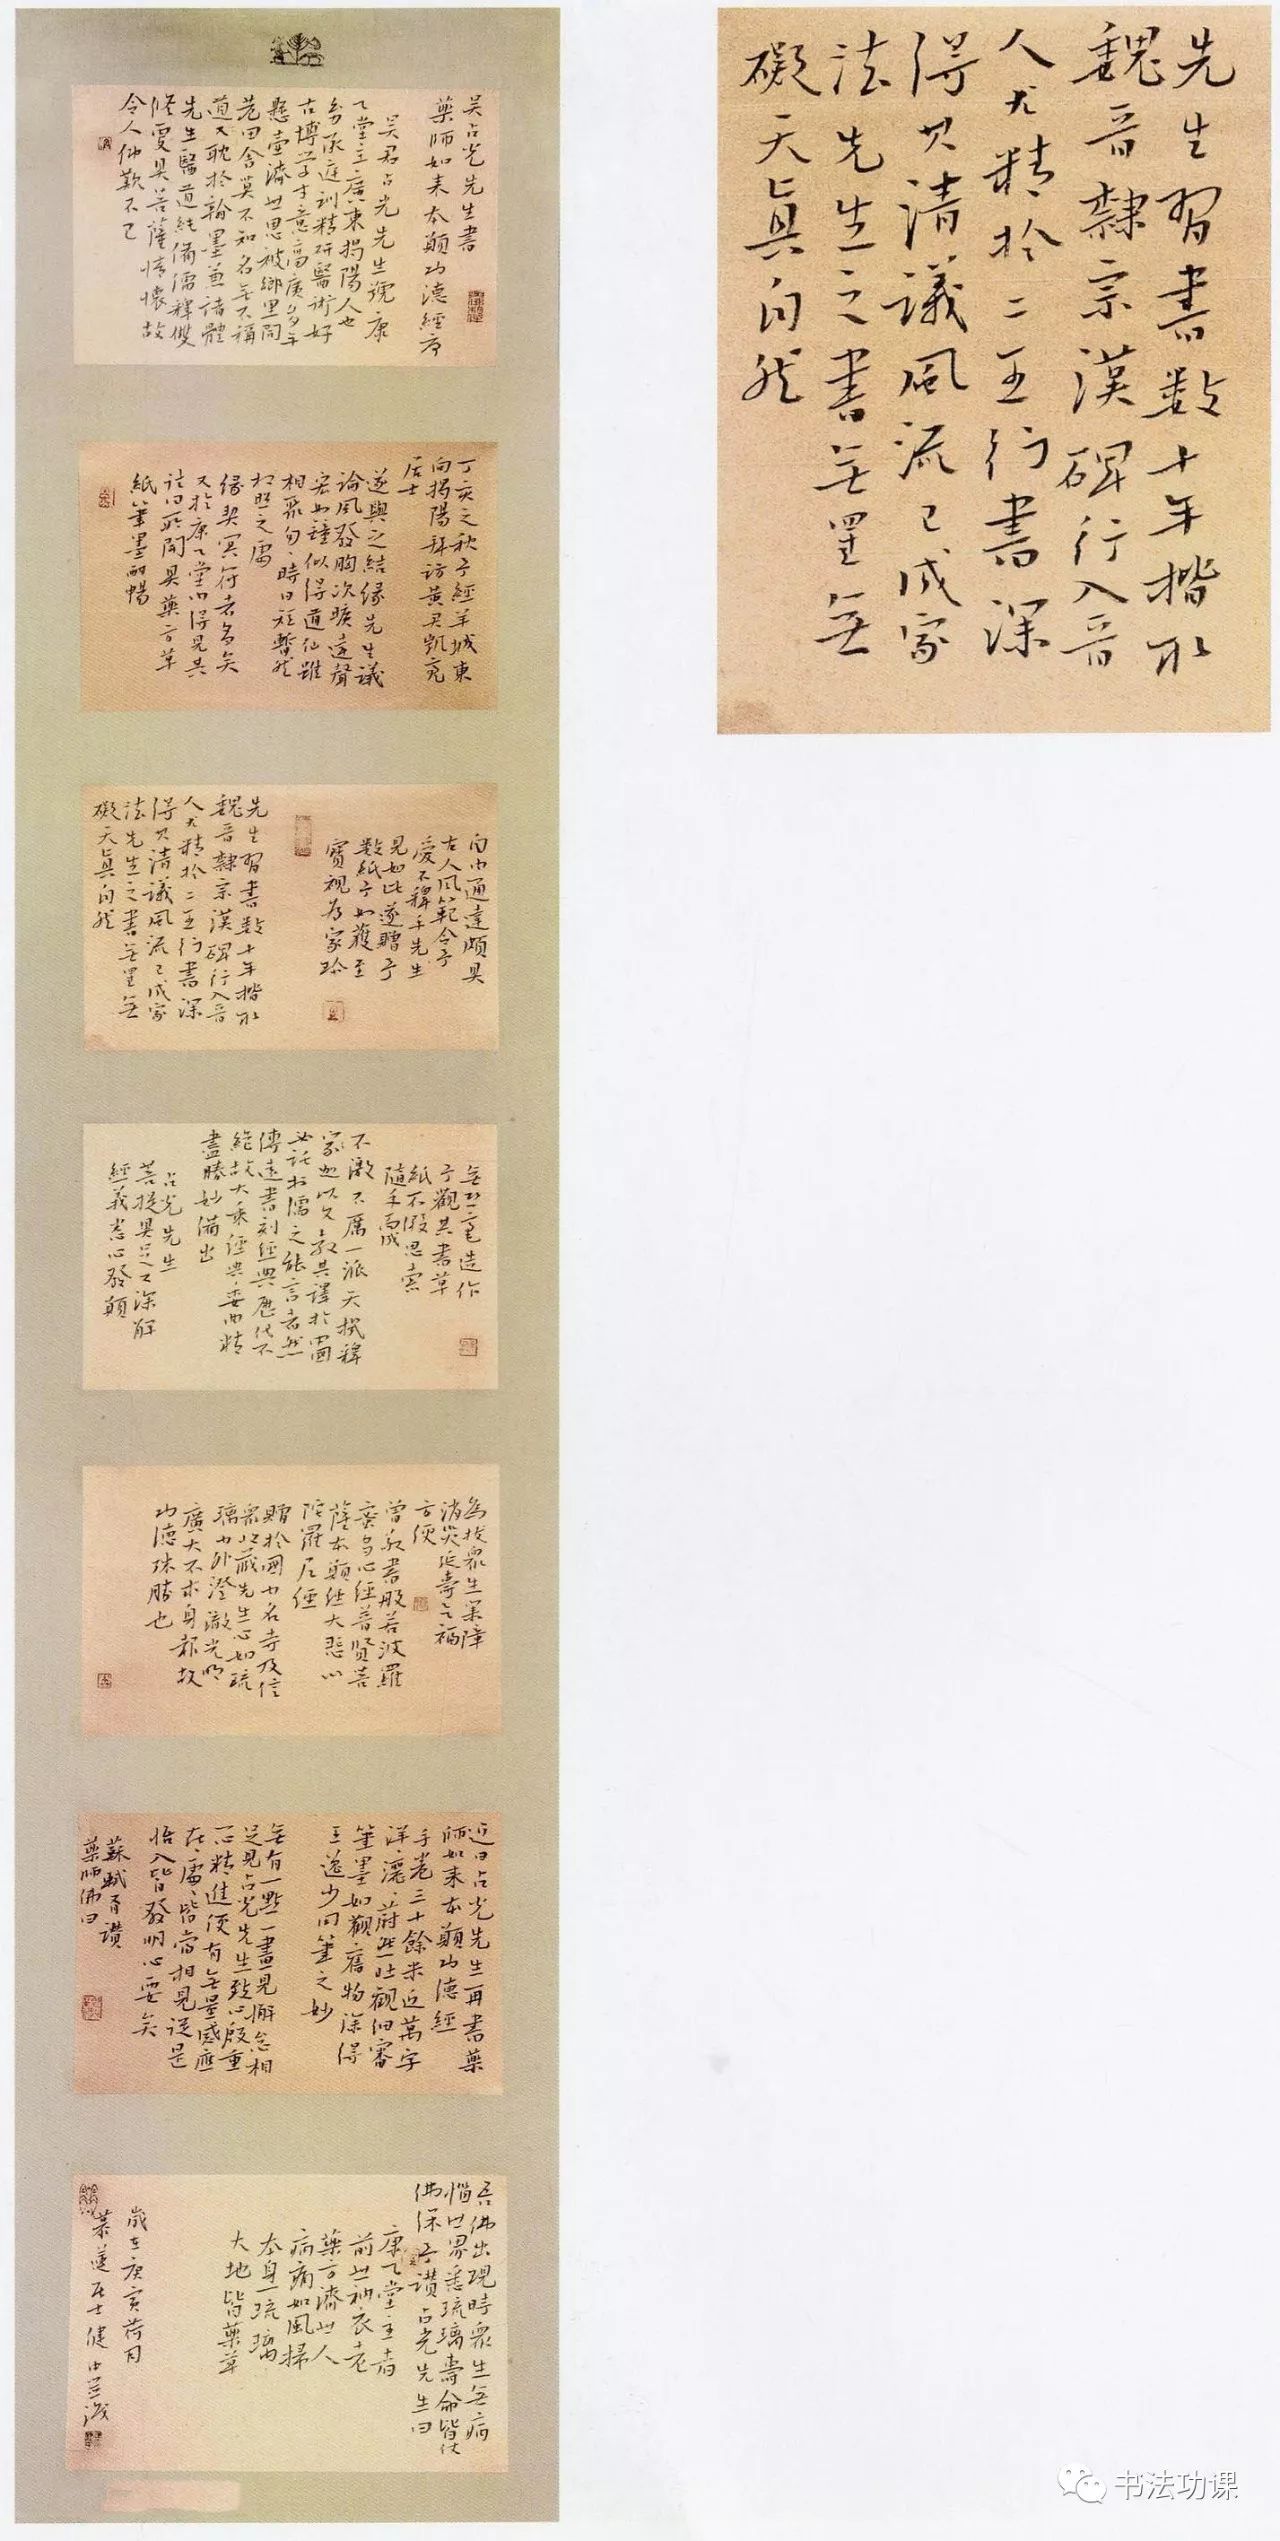 吴占光先生書
藥師如来本願功德經序
吴君占光先生號康
乙堂主廣東揭陽人也
幼承庭訓精研醫術好
古博学才意高廣多年
懸壺濟世思被鄉里間
苑田舍莫不知名無不稱
道又耽於翰墨兼諸體
先生醫道純備儒釋雙
修更具菩薩情懷故
令人仰歎不已
丁亥之秋予經羊城東
向揭陽拜訪黄君凯亮
居士
遂與之結缘先生議
論風發胸次曠遠聲
宏如鐘似得道仙雖
相聚匆々時日短暫然
相照之處
缘契冥符者多矣
又於康乙堂内得見其
診日所開具藥方草
紙筆墨酣暢
白内通達頗具
古人風範令予
愛不釋手先生
見如此遂贈予
數紙予如獲至
寶視为家珍
先生習書数十年楷取
魏晋隸宗漢碑行入晋
人尤精於二王行書深
得其清議風流已成家
法先生之書無罣無
礙天真自然
無刻意造作
予觀其書草
紙不假思索
隨手而成
不激不厲一派天機釋
家也以文教其譯於中國
必託於儒之能言者然
傳遠書刻經典歷代不
絶故大乘經典委曲精
盡勝妙備出
占光先生
菩提具足又深解
經義悉心發願
為拔衆生業障
消災延壽之福
方便
曾敬書般若波羅
蜜多心經普賢菩
薩本願經大悲心
陀羅尼經
贈於國内名寺及信
衆收藏先生心如琉
璃内外澄澈光明
廣大不求身報故
功德殊勝也
近日占光先生再書藥
師如来本願功德經
手卷三十餘米近萬字
洋々灑々蔚然壮觀細審
筆墨如觀舊物深得
王逸少同筆之妙
無有一點一畫見懈怠相
足見占光先生致心殷重
一心精進便有無量感應
在々處々皆當相見從是
悟入皆發明心要矣
蘇軾有讚
藥師佛曰
吾佛出現時衆生無病
惱世界悉琉璃壽命皆仗
佛保予讚占光先生曰
康乙堂主者
前世衲衣老
藥方濟世人
病痛如風掃
本身一琉璃
大地皆藥草
歲在庚寅荷月
慕蓮居士健中並識
先生習書数十年楷取
魏晋隸宗漢碑行入晋
人尤精於二王行書深
得其清議風流已成家
法先生之書無罣無
礙天真自然
书法功课